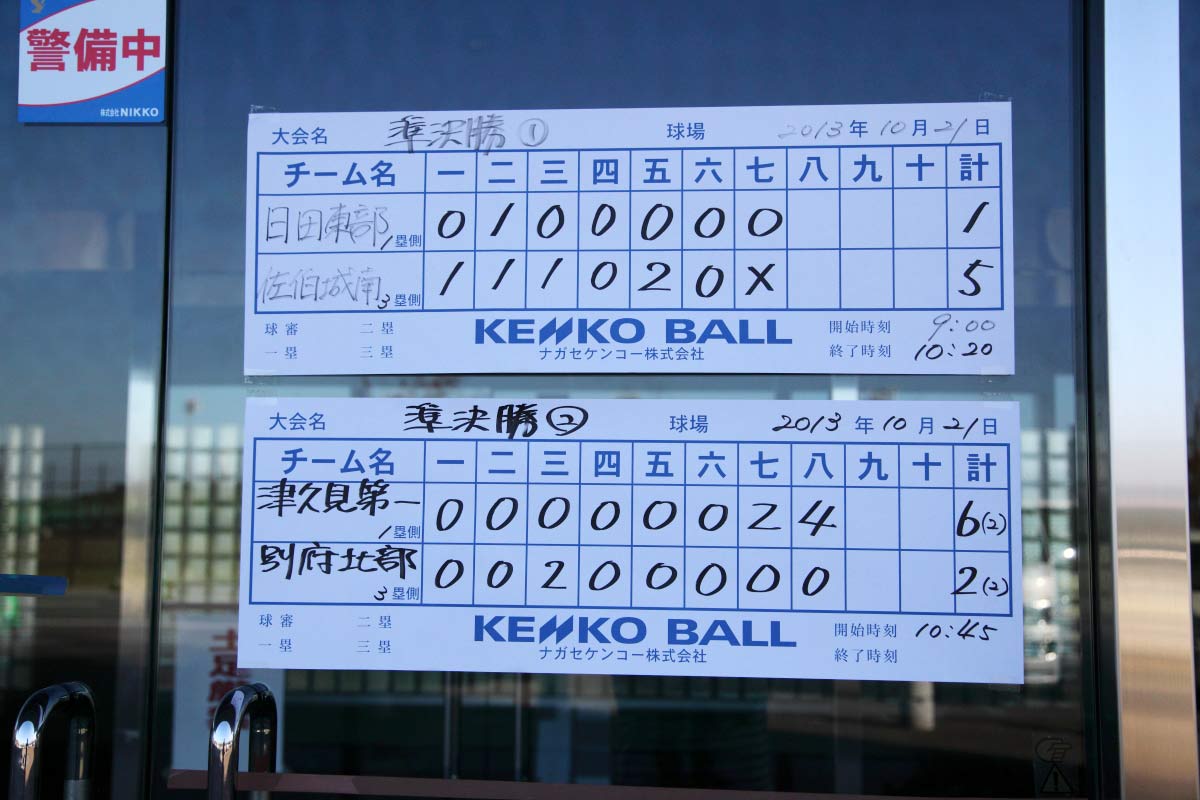 警備中
株式会社NIKKO
大会名 準決勝① 球場 2013年10月21日
チーム名 一 二 三 四 五 六 七 八 九 十 計
日田東部 1塁側 0 1 0 0 0 0 0 1
佐伯城南 3塁側 1 1 1 0 2 0 X 5
球審 二塁 KENKO BALL 開始時刻 9:00
一塁 三塁 ナガセケンコー株式会社 終了時刻 10:20
大会名 準決勝② 球場 2013年10月21日
チーム名 一 二 三 四 五 六 七 八 九 十 計
津久見第一 1塁側 0 0 0 0 0 0 2 4 6(2)
別府北部 3塁側 0 0 2 0 0 0 0 0 2(2)
球審 二塁 KENKO BALL 開始時刻 10:45
一塁 三塁 ナガセケンコー株式会社 終了時刻